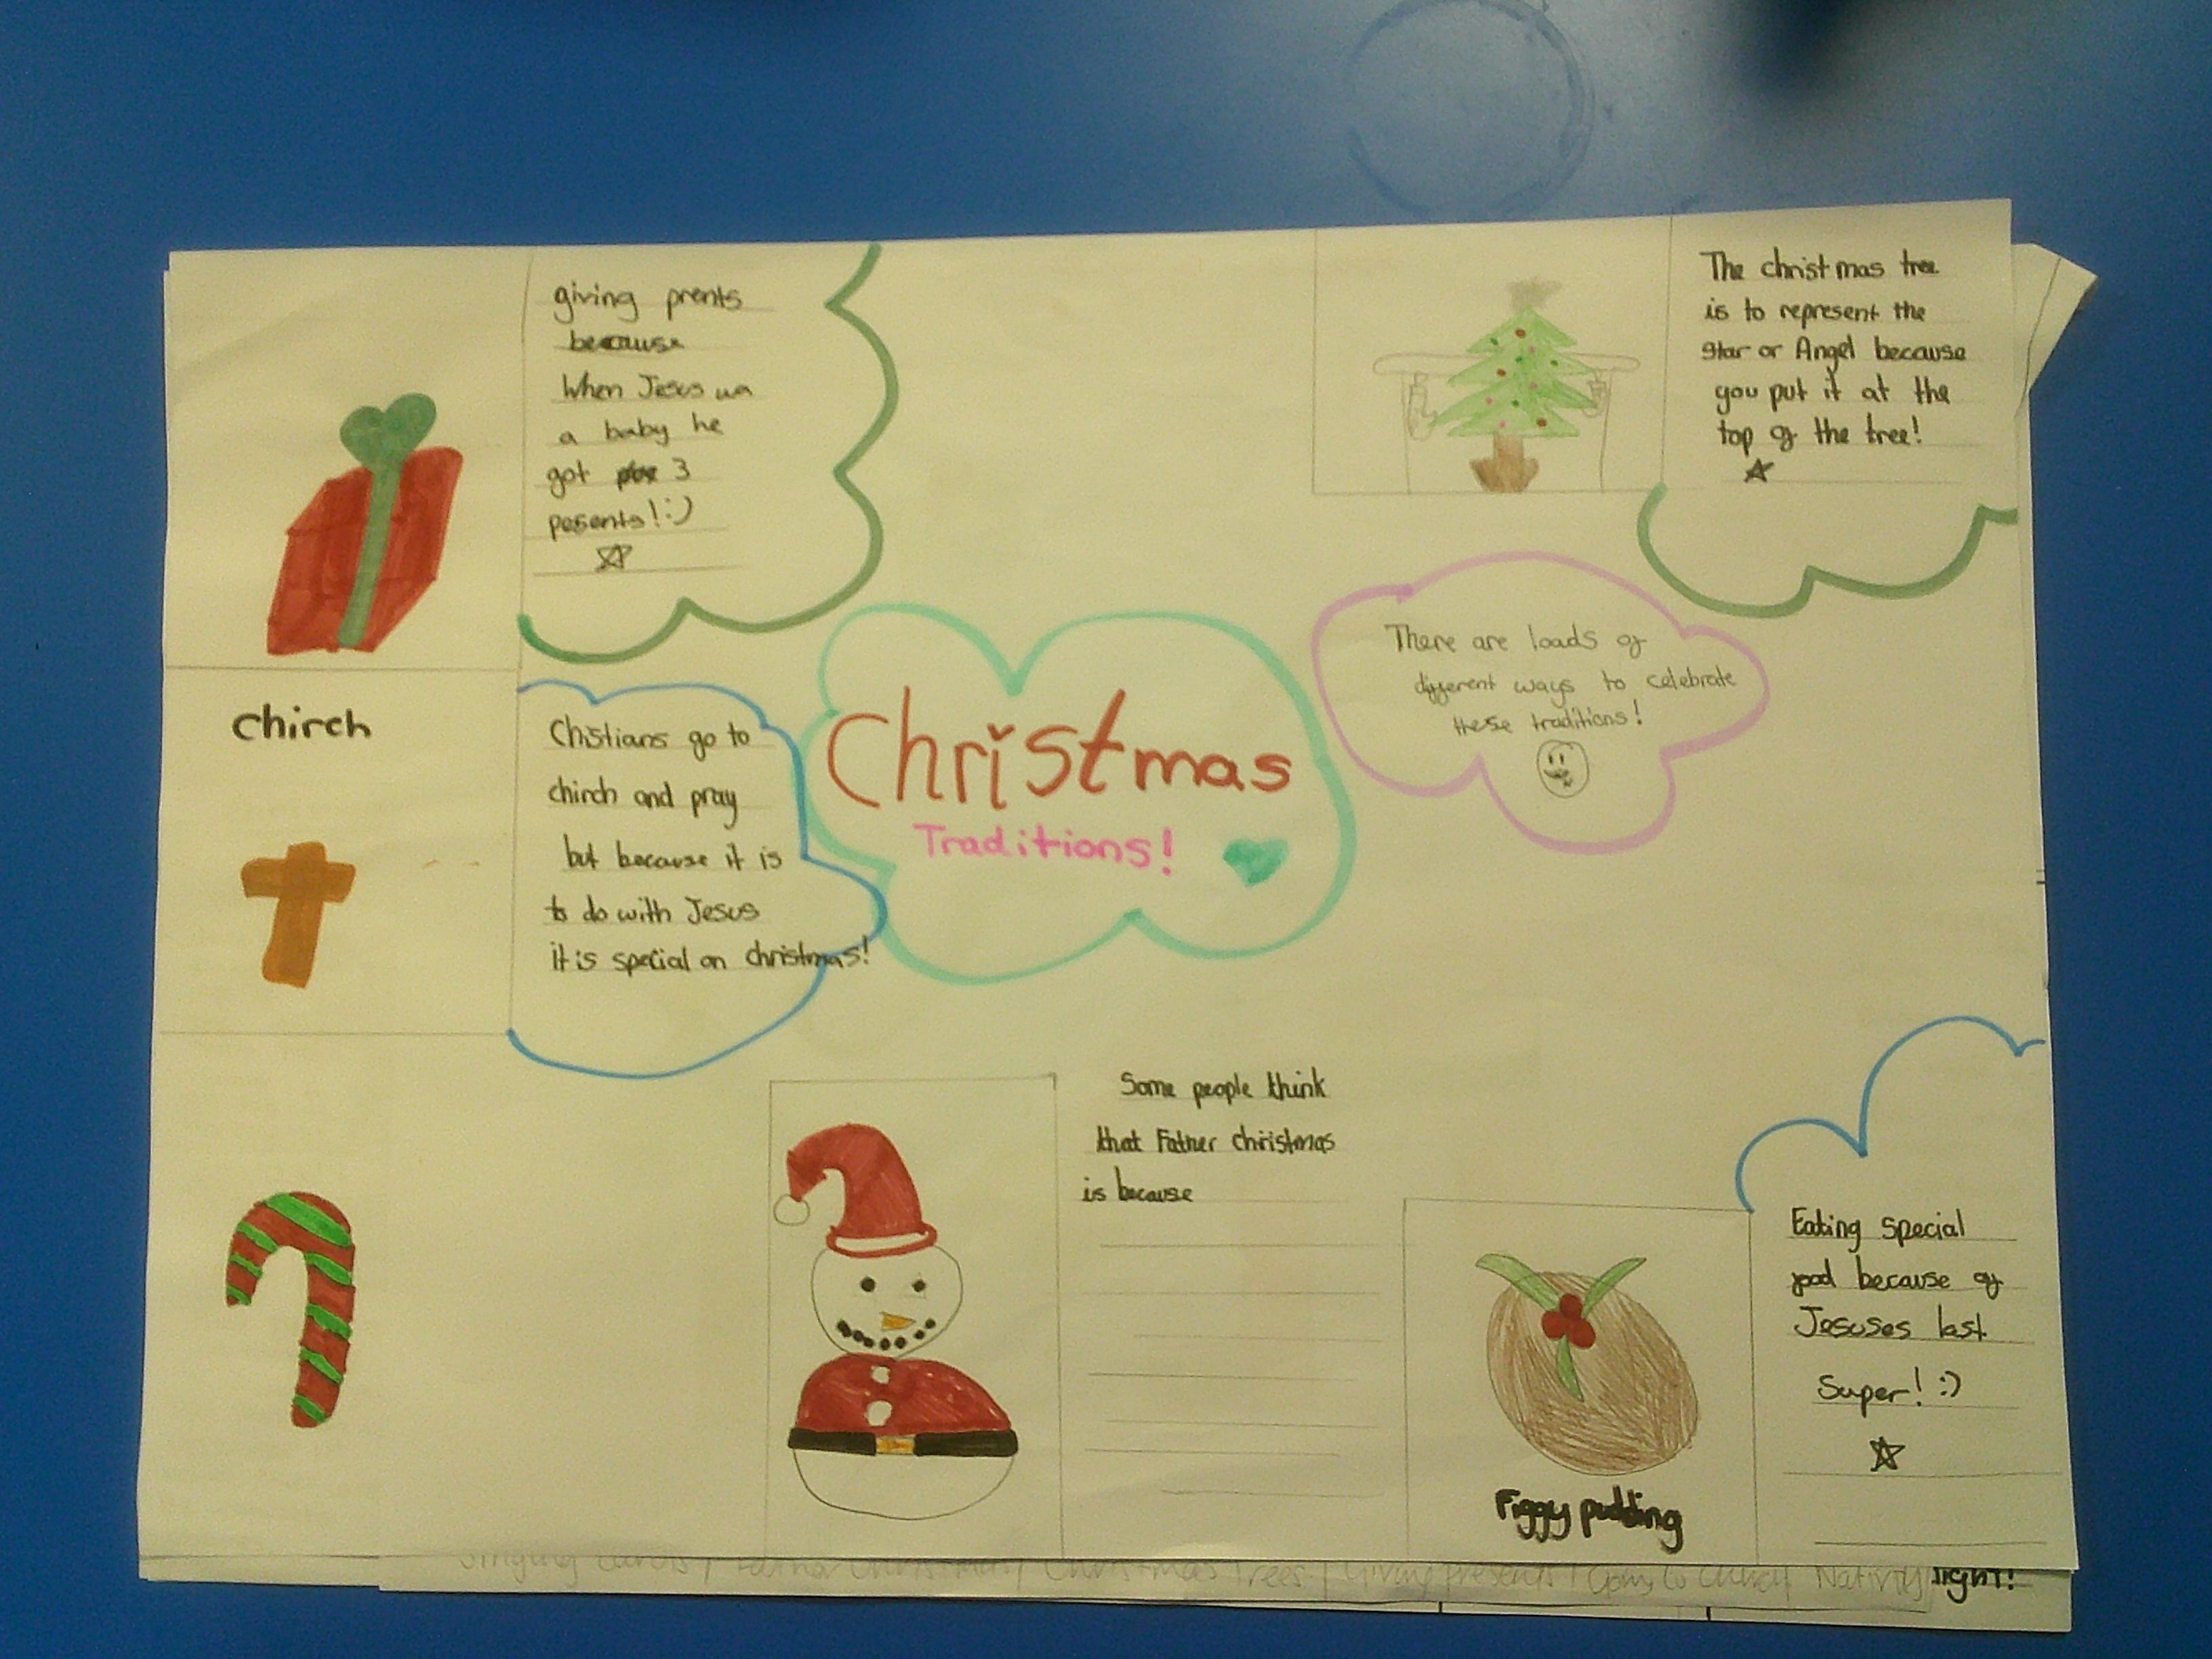 giving prents
because
When Jesus wa
a baby he
got 3
pesents! :)
The christmas tree
is to represent the
Star or Angel because
you put it at the
top of the tree!
There are loads of
different ways to celebrate
these traditions!
Christmas
Traditions!
Chirch
Chistians go to
chirch and pray
but because it is
to do with Jesus
it is special on christmas!
Some people think
that Father christmas
is because
Eating special
food because of
Jesuses last
Super! :)
Figgy pudding
Singing carols / Father Christmas / Christmas Trees / Giving presents / Going to church / Nativity
light!